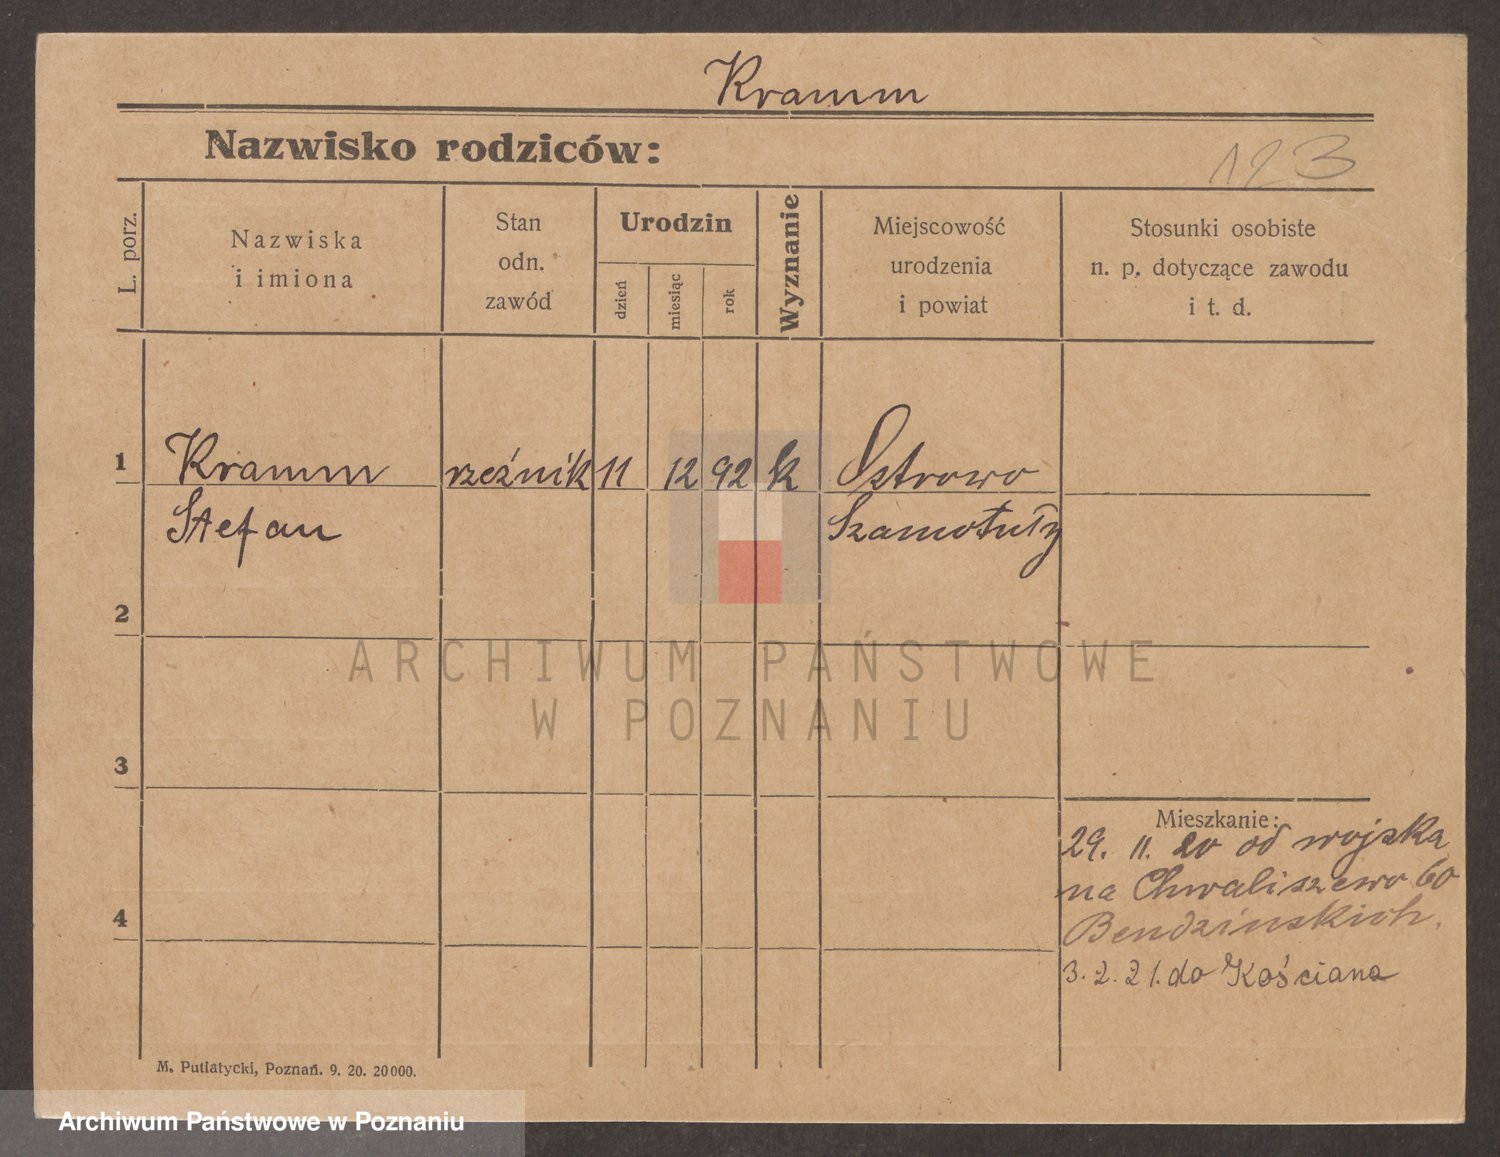 Kramm
Nazwisko rodziców:
123
L. porz.
Nazwiska
i imiona
Stan
odn.
zawód
Urodzin
dzień
miesiąc
rok
Wyznanie
Miejscowość
urodzenia
i powiat
Stosunki osobiste
n. p. dotyczące zawodu
i t. d.
1 Kramm rzeźnik 11 12 92 k Ostrowo
Stefan Szamotuły
2
3
4
Mieszkanie:
29. 11. 20 od wojska
na Chwaliszewo 60
Bendzińskich.
3. 2. 21. do Kościana
M. Putiatycki, Poznań. 9. 20. 20000.
ARCHIWUM PAŃSTWOWE
W POZNANIU
Archiwum Państwowe w Poznaniu